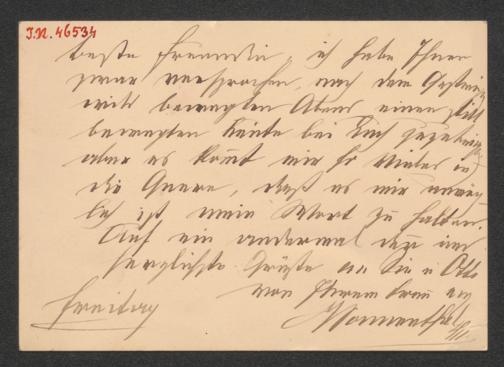 J.N. 46534
beste Freundin, ich habe Ihnen
zwar versprochen, nach dem Gestrigen
bewegten Abend einen still
bewegten heute bei Euch zuzubringen
aber es kommt mir so Vieles in
die Quere, daß es mir unmög
lich ist mein Wort zu halten.
Auf ein andermal denn und
herzlichste Grüße an Sie u Otto
von Ihrem treu erg
Sonnenthal
Freitag